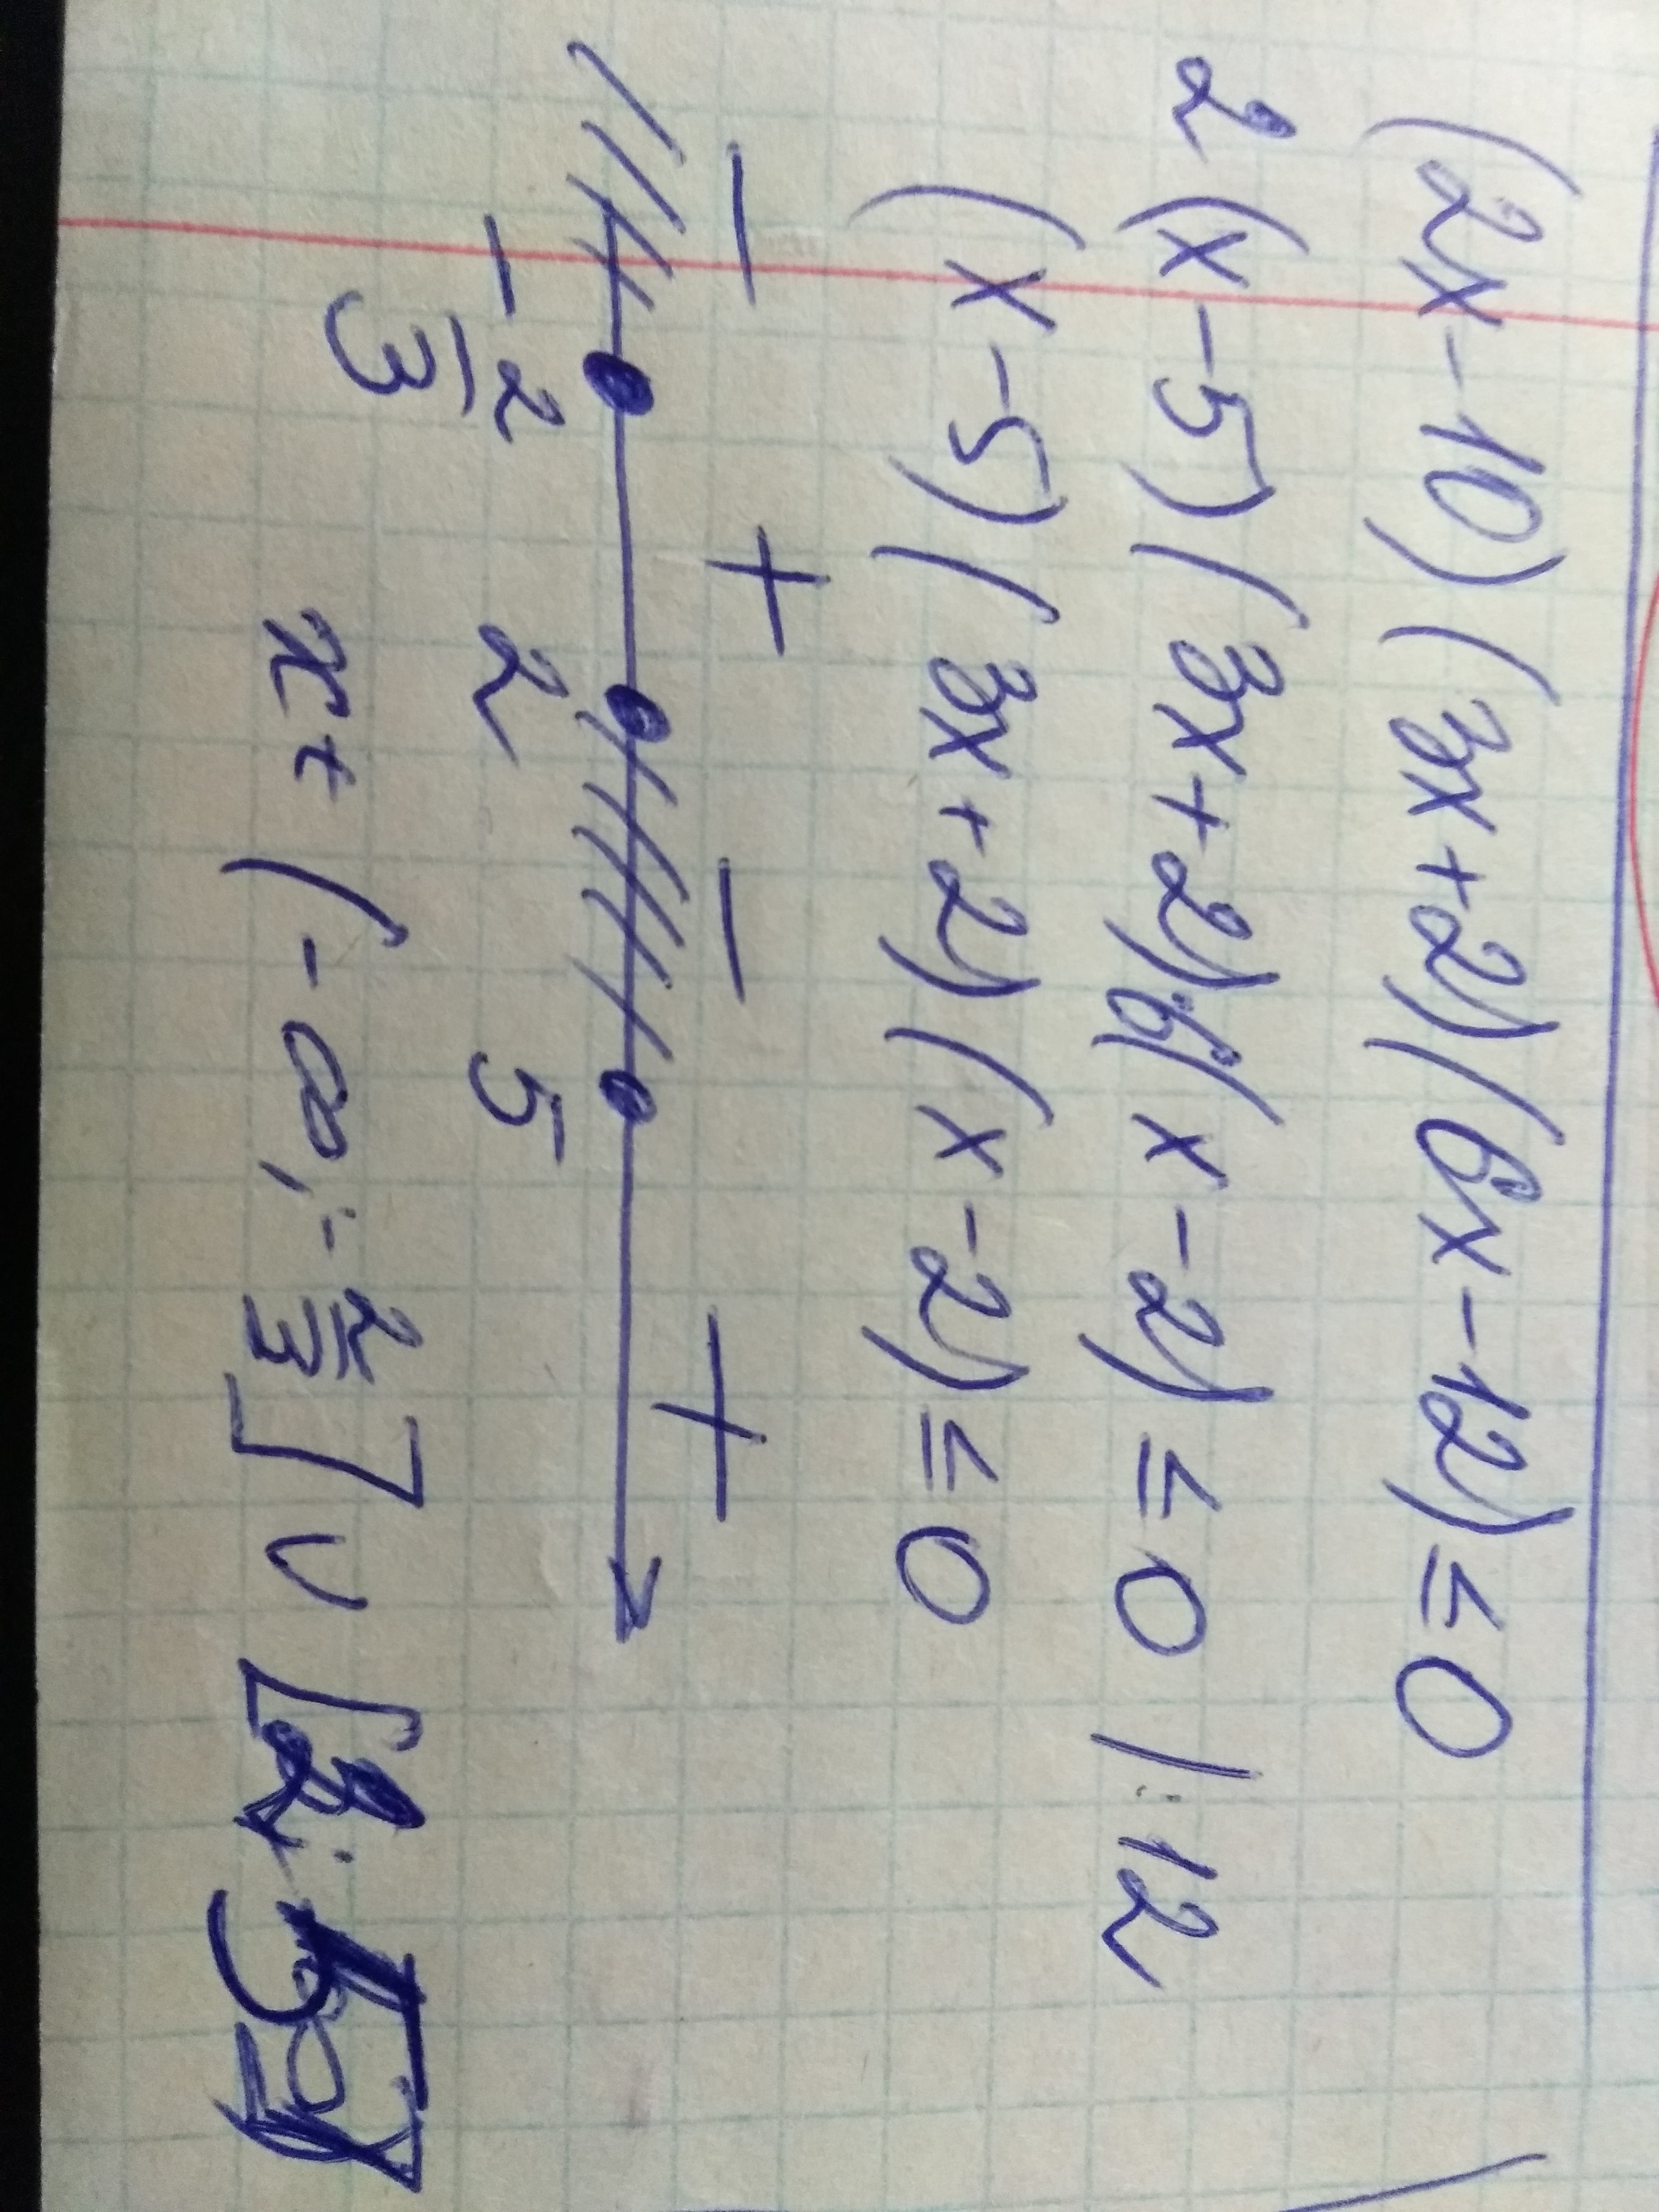 (2x-10)(3x+2)(6x-12)≤0
2(x-5)(3x+2)6(x-2)≤0 |:12
(x-5)(3x+2)(x-2)≤0
- + - +
-2/3 2 5
x∈(-∞;-2/3]∪[2;5]